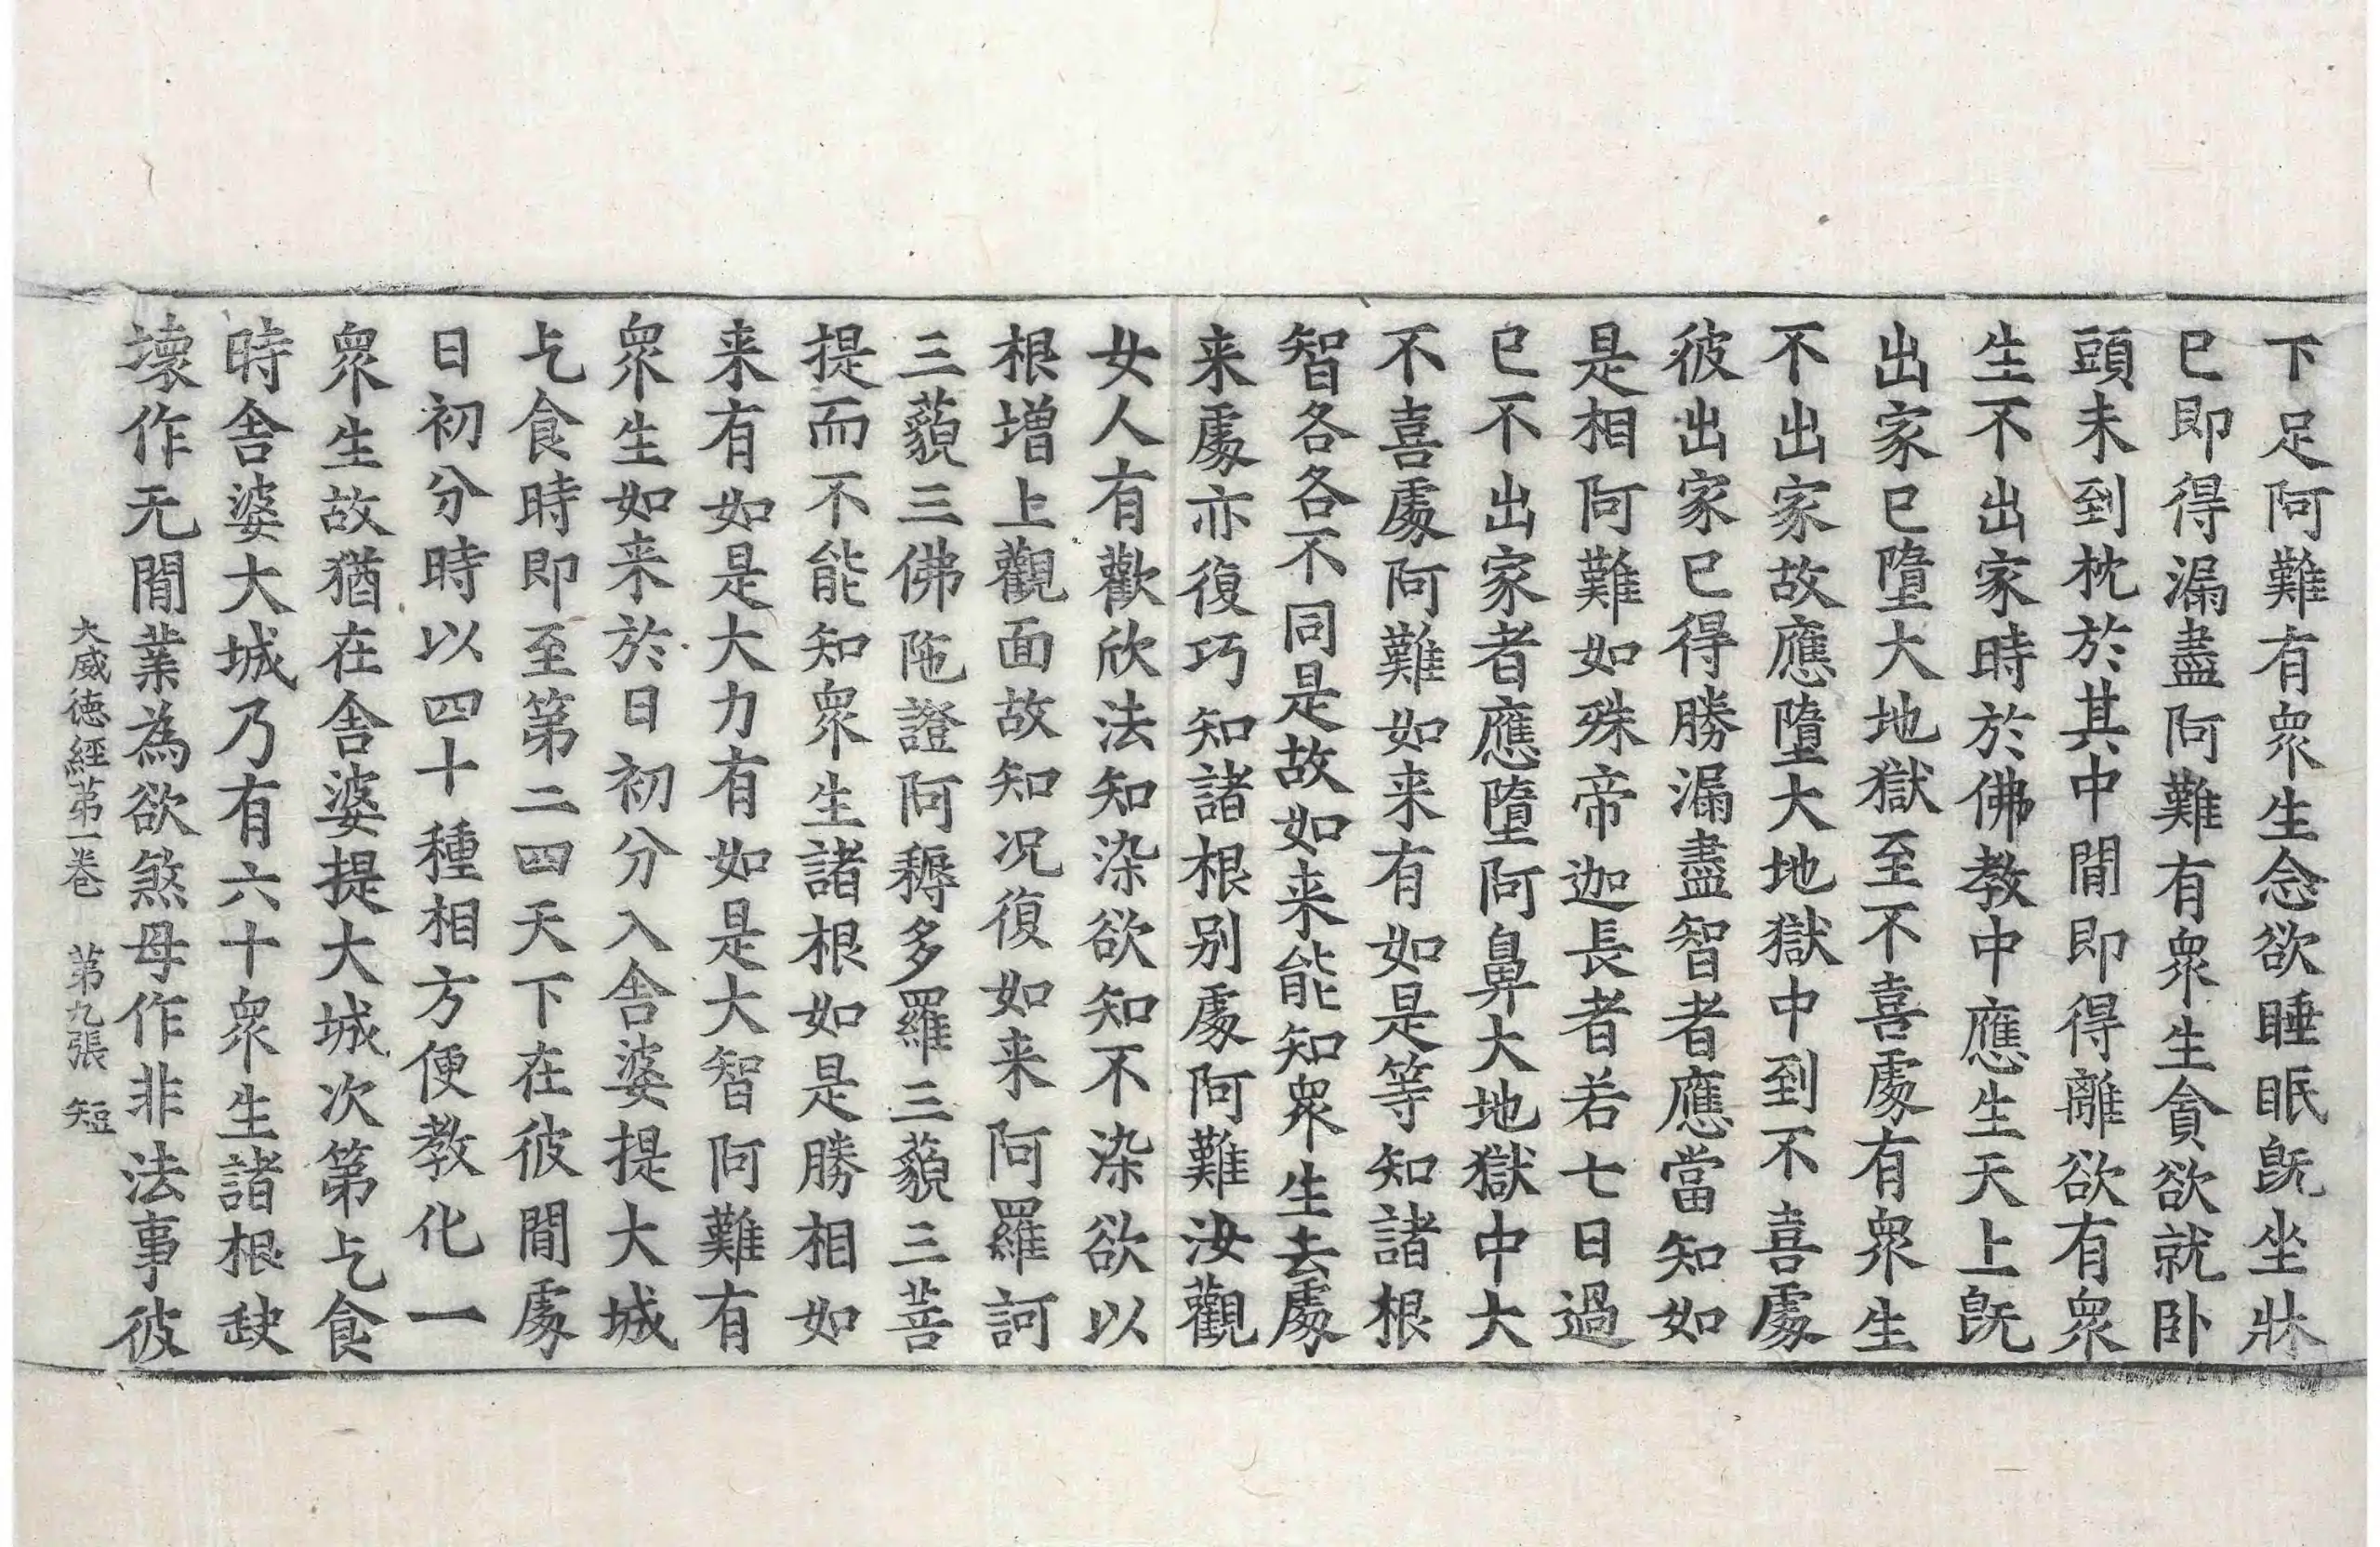 下足阿難有衆生念欲睡眠旣坐牀
已即得漏盡阿難有衆生貪欲就卧
頭未到枕於其中間即得離欲有衆
生不出家時於佛教中應生天上旣
出家已墮大地獄至不喜處有衆生
不出家故應墮大地獄中到不喜處
彼出家已得勝漏盡智者應當知如
是相阿難如殊帝迦長者若七日過
已不出家者應墮阿鼻大地獄中大
不喜處阿難如来有如是等知諸根
智各各不同是故如来能知衆生去處
来處亦復巧知諸根別處阿難汝觀
女人有歡欣法知染欲知不染欲以
根增上觀面故知况復如来阿羅訶
三藐三佛陁證阿耨多羅三藐三菩
提而不能知衆生諸根如是勝相如
来有如是大力有如是大智阿難有
衆生如来於日初分入舍婆提大城
乞食時即至第二四天下在彼間處
日初分時以四十種相方便教化一
衆生故猶在舍婆提大城次第乞食
時舍婆大城乃有六十衆生諸根缺
壞作无間業為欲煞母作非法事彼
大威德經第一卷　第九張　短